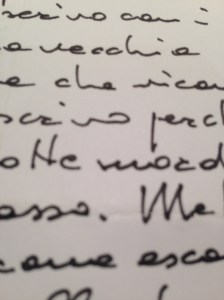 scrivo con i
vecchia
e che rico
scrivo perch
otte mord
asso. Me
come esco